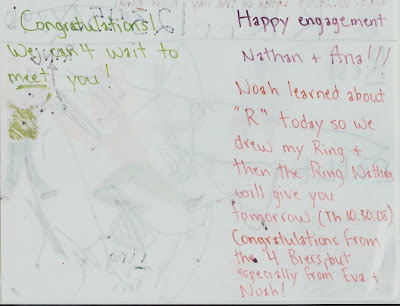 Congratulations!
We can't wait to
meet you!
Happy engagement
Nathan + Ana!!!
Noah learned about
"R" today so we
drew my Ring +
then the Ring Nathan
will give you
tomorrow (Th 10.30.08).
Congratulations from
the 4 Biers, but
especially from Eva +
Noah!